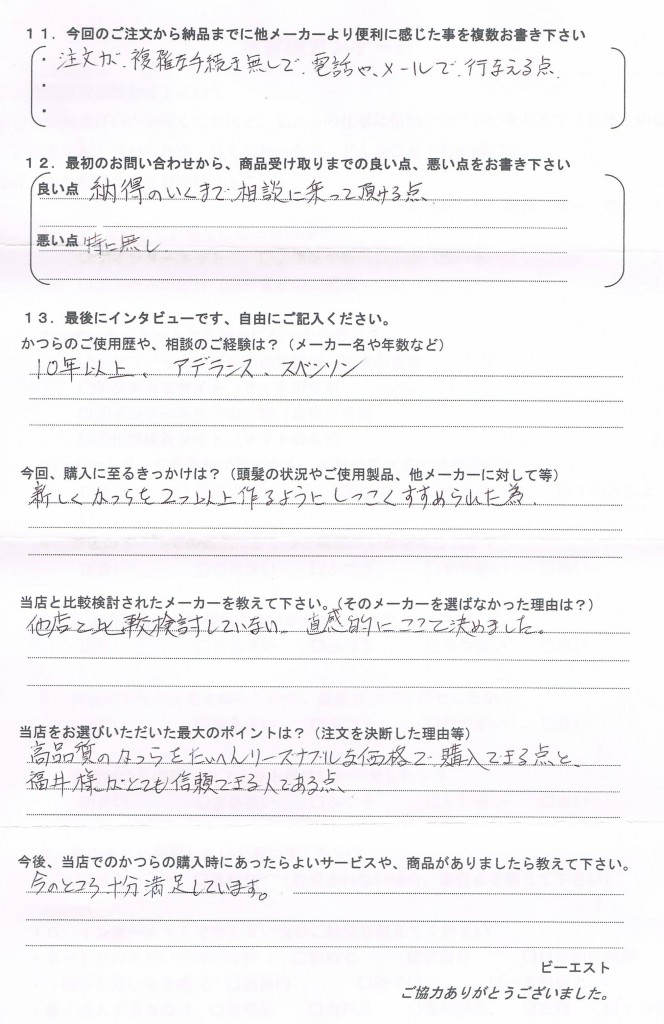 11．今回のご注文から納品までに他メーカーより便利に感じた事を複数お書き下さい
・注文が、複雑な手続き無しで、電話や、メールで、行なえる点、
・
・
12．最初のお問い合わせから、商品受け取りまでの良い点、悪い点をお書き下さい
良い点 納得のいくまで、相談に乗って頂ける点、
悪い点 特に無し
13．最後にインタビューです、自由にご記入ください。
かつらのご使用歴や、相談のご経験は？（メーカー名や年数など）
10年以上、アデランス、スベンソン
今回、購入に至るきっかけは？（頭髪の状況やご使用製品、他メーカーに対して等）
新しくかつらを2つ以上作るようにしつこくすすめられた為、
当店と比較検討されたメーカーを教えて下さい。（そのメーカーを選ばなかった理由は？）
他店と比較検討していない。直感的にここで決めました。
当店をお選びいただいた最大のポイントは？（注文を決断した理由等）
高品質のかつらをたいへんリーズナブルな価格で、購入できる点と、
福井様がとても信頼できる人である点、
今後、当店でのかつらの購入時にあったらよいサービスや、商品がありましたら教えて下さい。
今のところ十分満足しています。
ピーエスト
ご協力ありがとうございました。